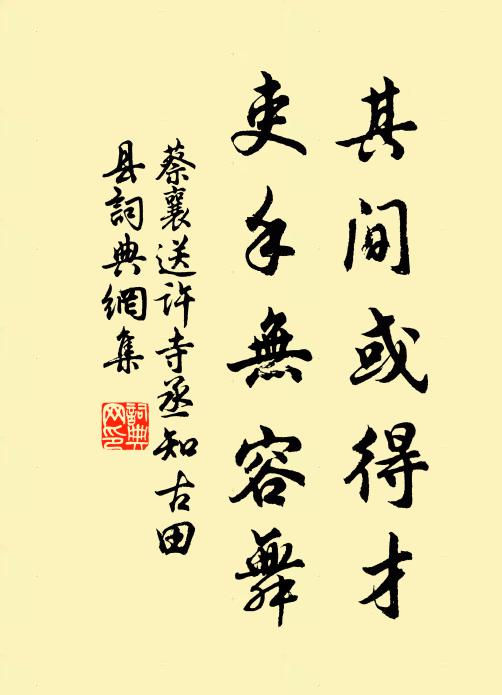 其間或得才
吏手無容舞
蔡襄送許寺丞知古田
县詞典網集
詞典
网印